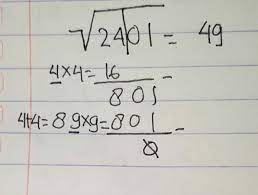 √2401 = 49
4×4= 16 -
801
4+4= 89×9= 801 -
0